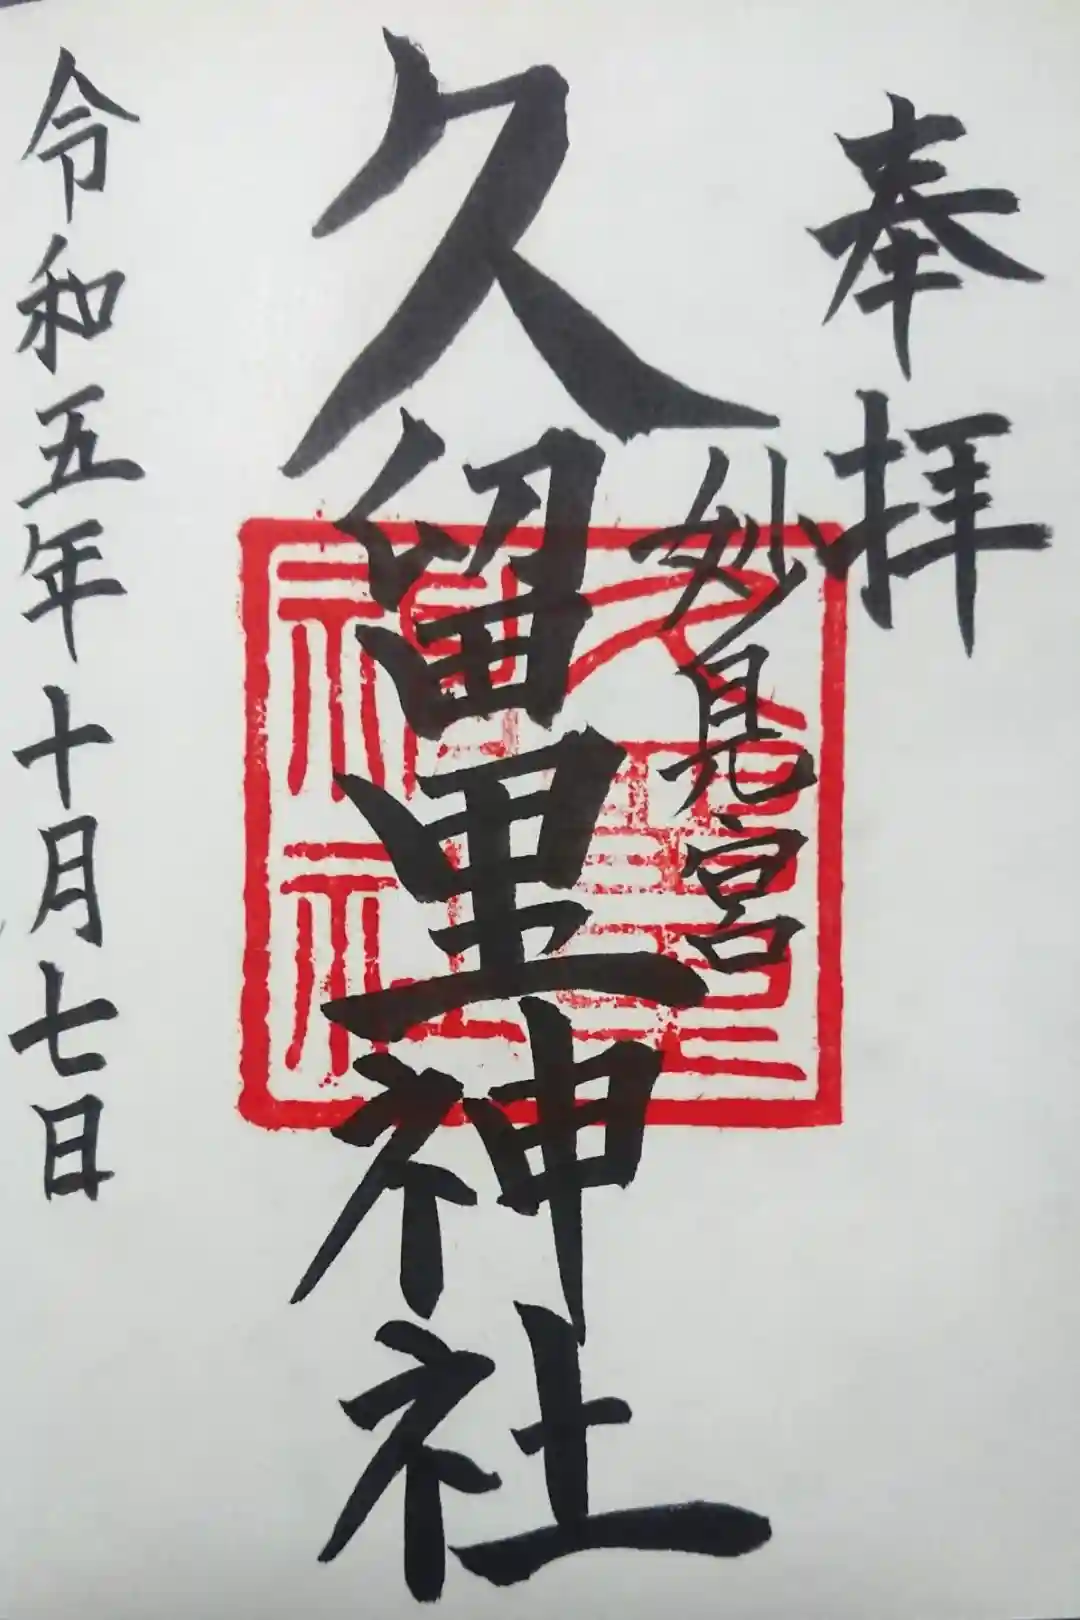 奉拝
妙見宮
久留里神社
令和五年十月七日